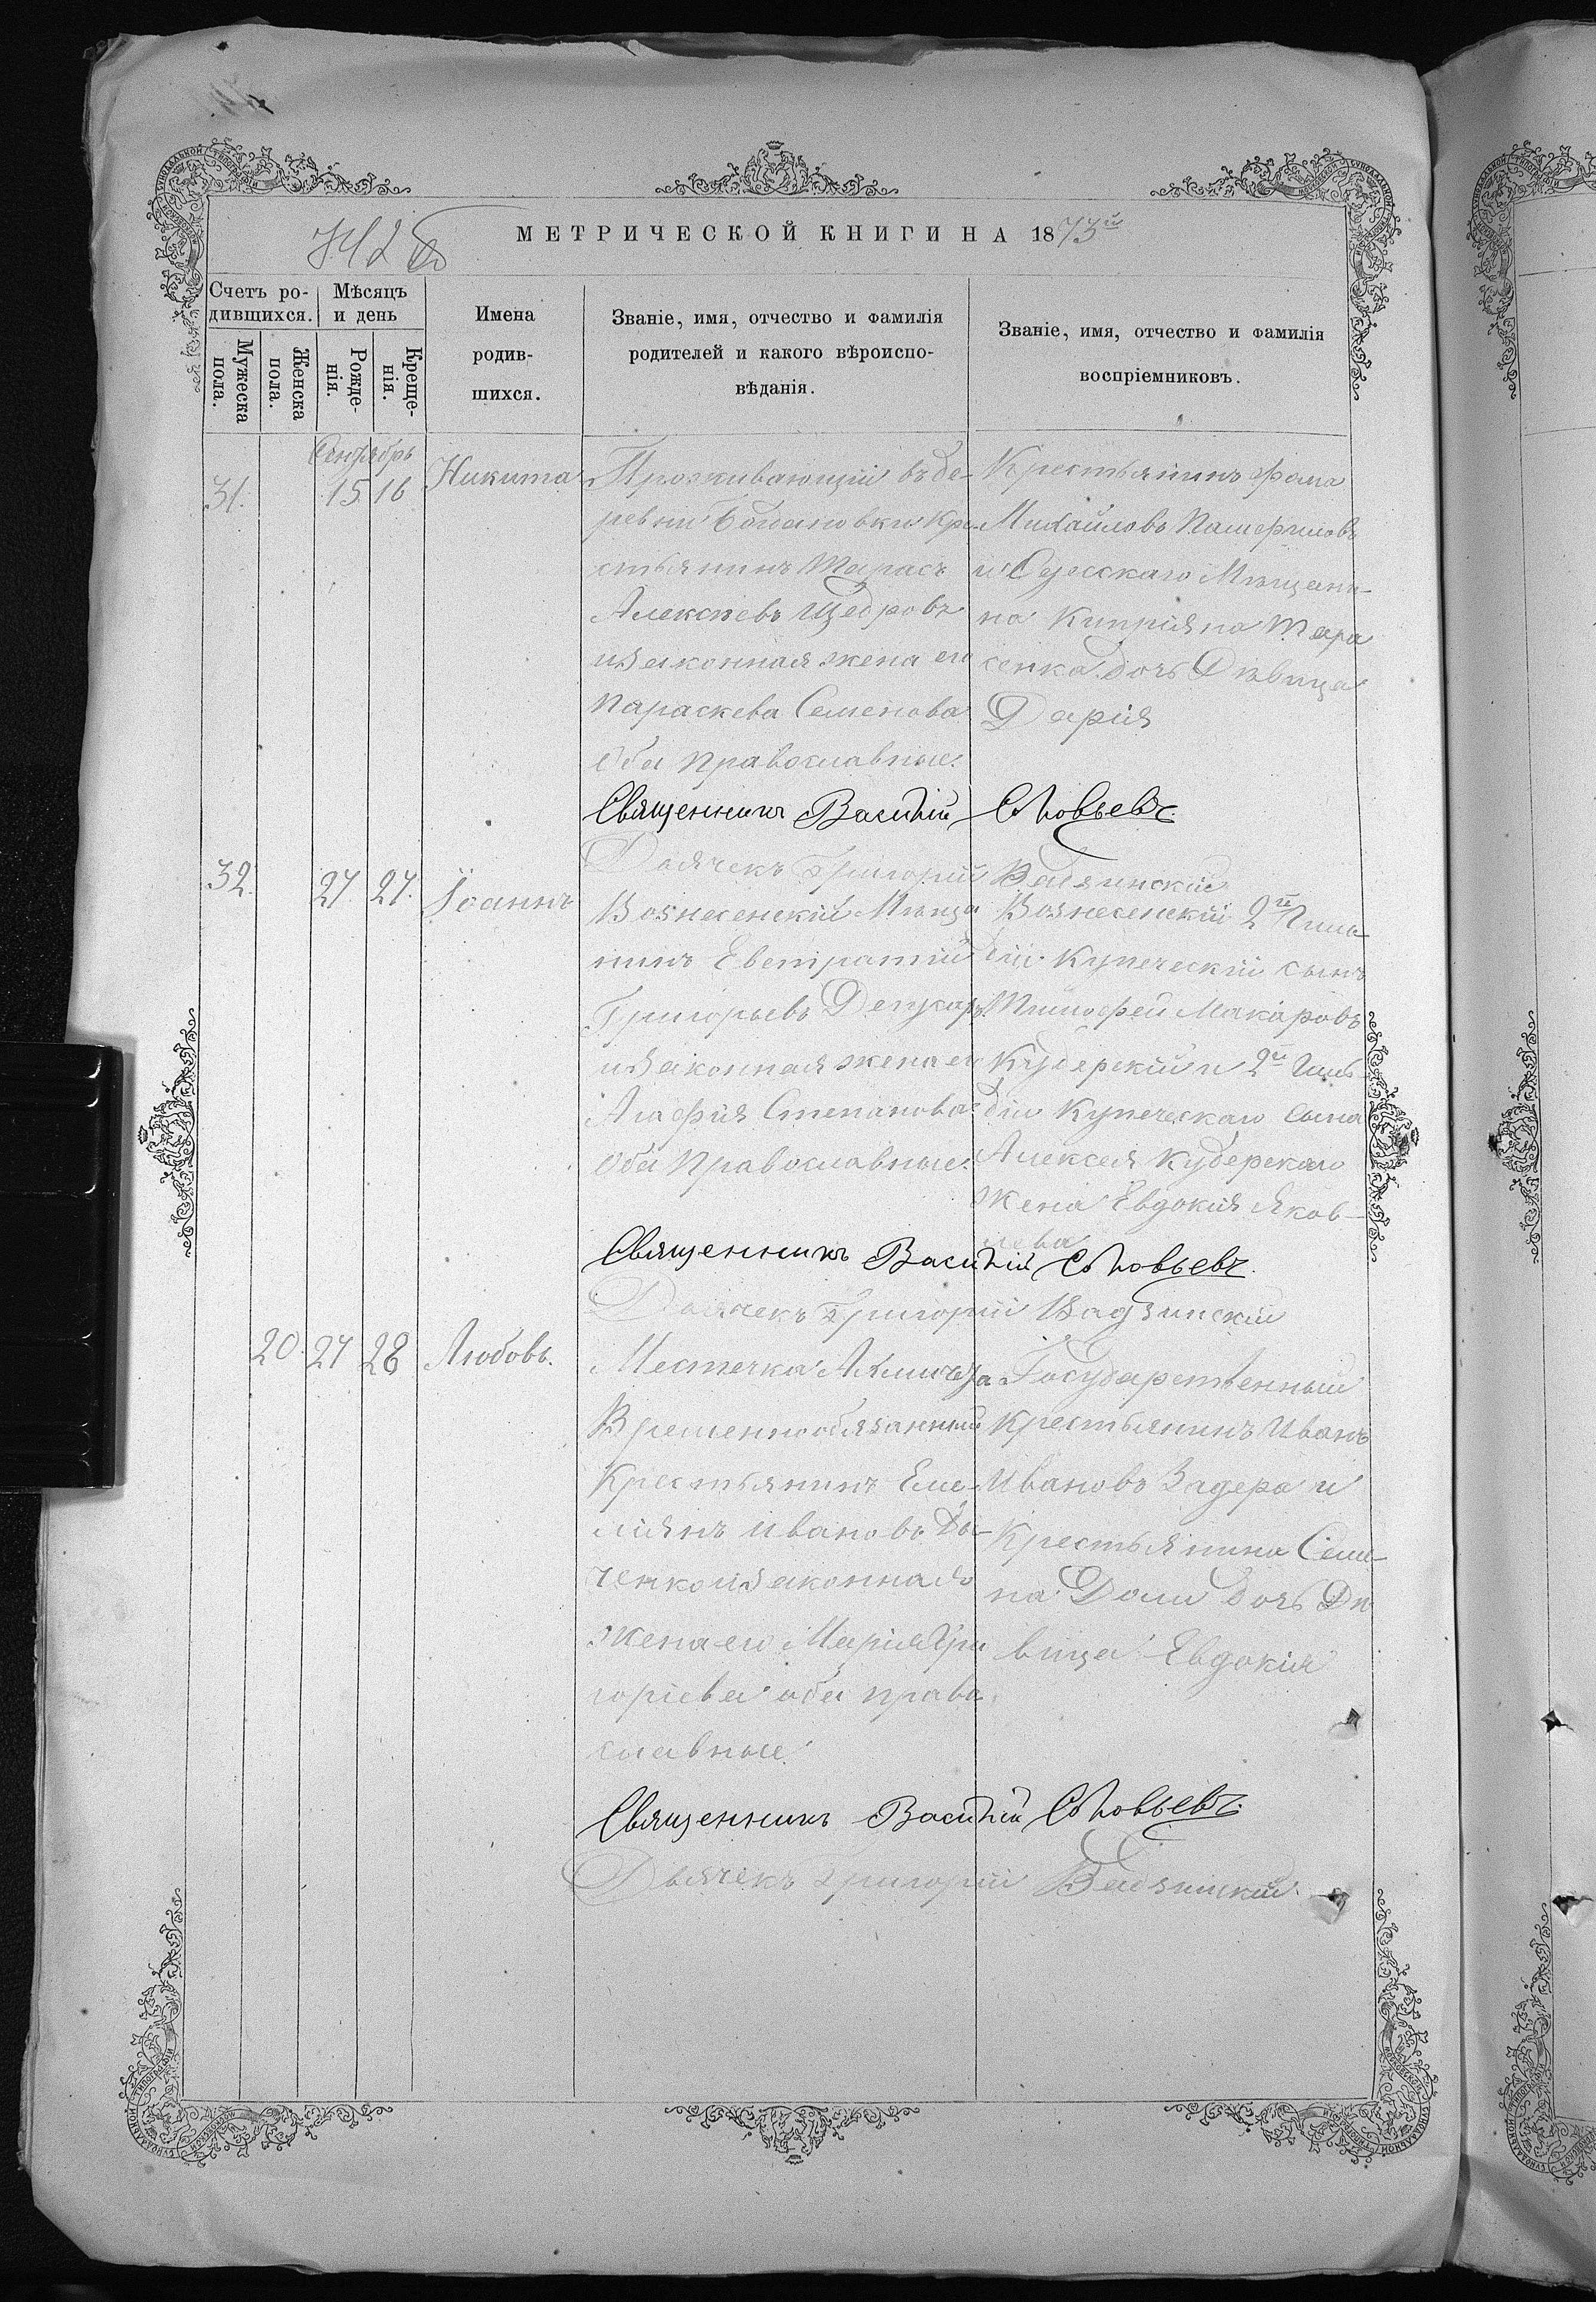 МЕТРИЧЕСКОЙ КНИГИ НА 1873й
Счетъ ро-
дившихся.
Мѣсяцъ
и день
Мужеска
пола.
Женска
пола.
Рожде-
нія.
Креще-
нія.
Имена
родив-
шихся.
Званіе, имя, отчество и фамилія
родителей и какого вѣроиспо-
вѣданія.
Званіе, имя, отчество и фамилія
воспріемниковъ.
Сентябрь
31.
15 16
Никита
Проживающій въ де-
ревни Кре-
стьянинъ Тарасъ
Алексѣевъ Щедровъ
и законная жена его
Параскева Семенова
оба православные.
Крестьянинъ Фома
Михайловъ
и Одесскаго Мѣщани-
на Кипріяна Тара
сенка дочь Дѣвица
Дарія
Священникъ Василій Соловьевъ.
Дьячекъ Григорій Вадзинскій
32.
27 27.
Іоаннъ
Вознесенскій Мѣща
нинъ Евстратій
Григорьевъ
и законная жена его
Агафія Степанова
оба Православные.
Вознесенскій 2й Гиль
діи Купеческій сынъ
Тимофей Макаровъ
Кудерскій и 2й Гиль
діи Купеческаго сына
Алексея Кудерскаго
жена Евдокія Яков-
лева
Священникъ Василій Соловьевъ.
Дьячекъ Григорій Вадзинскій
20.
27 28
Любовь.
Местечка
Временнообязанный
Крестьянинъ Еме-
ліянъ Ивановъ Дья-
ченко и законная
жена его Марія Гри
горіева оба право
славные.
Государственный
Крестьянинъ Иванъ
Ивановъ Задера и
Крестьянина Семе-
на дочь Дѣ
вица Евдокія
Священникъ Василій Соловьевъ.
Дьячекъ Григорій Вадзинскій.